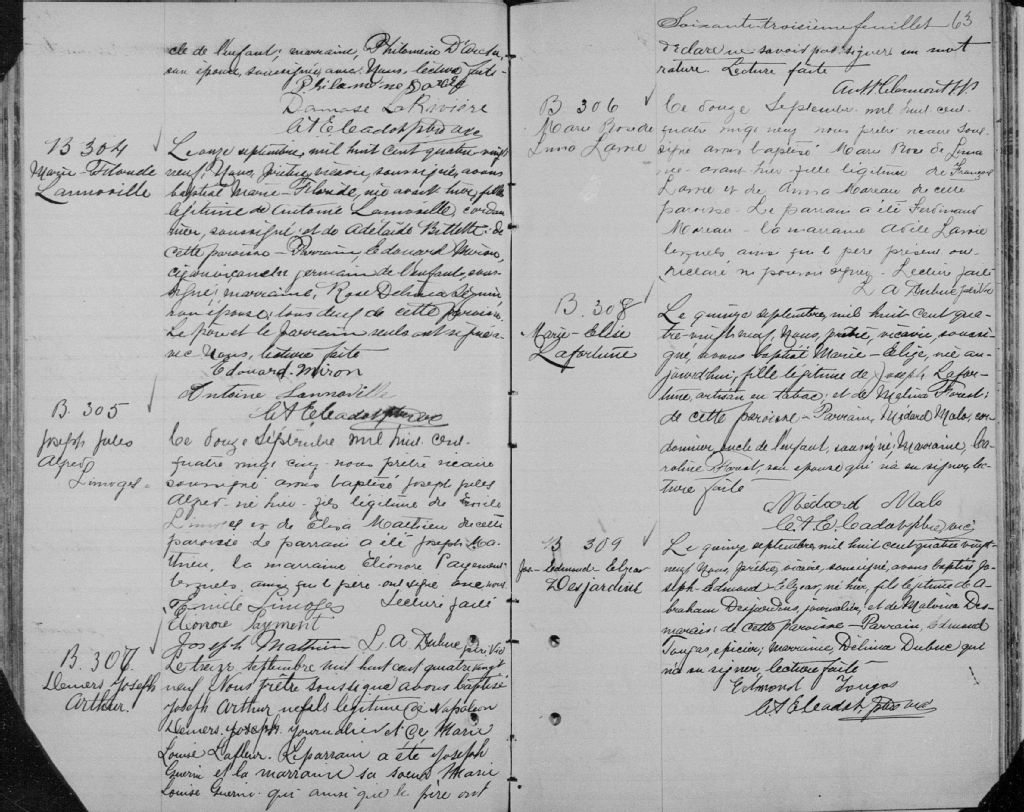 cle de l'enfant; marraine, Philomène D'Aoust,
son épouse, soussignés avec Nous. Lecture faite.
Philomène Daoust
Damase LaRivière
B 304
Marie Floride
Lannoville
Le onze septembre, mil huit cent quatre vingt
neuf, Nous, prêtre vicaire, soussigné, avons
baptisé Marie-Floride, née avant hier, fille
légitime de Antoine Lannoville, cordon
nier, soussigné; et de Adélaïde Billette: de
cette paroisse - Parrain, Edouard Miron,
germain de l'enfant, sous
signé; marraine, Rose Délima Séguin
son épouse; tous deux de cette paroisse.
Le père et le parrain seuls ont signé a-
vec Nous, lecture faite
Edouard Miron
Antoine Lannoville
B. 305
Joseph Jules
Alfred
Limoges.
Le douze Septembre mil huit cent
quatre vingt nous prêtre vicaire
soussigné avons baptisé Joseph Jules
Alfred né hier fils légitime de Emile
Limoges et de Eliza Mathieu de cette
paroisse Le parrain a été Joseph Ma-
thieu, la marraine Eléonore Payement
lesquels ainsi que le père ont signé avec nous.
Emile Limoges Lecture faite
Eléonore Payment
Joseph Mathieu L A Dubuc ptre Vic
B. 307
Demers Joseph
Arthur.
Le treize septembre mil huit cent quatre vingt
neuf Nous prêtre soussigné avons baptisé
Joseph Arthur né fils légitime de Napoléon
Demers Joseph journalier et de Marie
Louise Lafleur. Le parrain a été Joseph
Guerin et la marraine sa soeur Marie
Louise Guerin qui ainsi que le père ont
Soixante-troisième feuillet 63
déclaré ne savoir pas signer un mot
rature. Lecture faite
B 306
Marie Rose de
Lima
Le douze Septembre mil huit cent
quatre vingt neuf nous prêtre vicaire sous-
signé avons baptisé Marie Rose de Lima
née avant-hier fille légitime de François
et de Anna Moreau de cette
paroisse - Le parrain a été Ferdinand
Moreau - la marraine
lesquels ainsi que le père présent ont
déclaré ne pouvoir signer - Lecture faite
L A Dubuc ptre Vic
B. 308
Marie-Elise
Lafortune
Le quinze septembre, mil huit cent qua
tre-vingt neuf, Nous, prêtre, vicaire, soussi-
gné, avons baptisé Marie-Elise, née au-
jourd'hui, fille légitime de Joseph Lafor-
tune, artisan en tabac; et de Mélina Forest:
de cette paroisse - Parrain, Médard Malo, cor
donnier, oncle de l'enfant, soussigné; Marraine, Ca
roline Forest, son épouse qui n'a su signer, lec
ture faite
Médard Malo
B 309
Jos-Edmond-Elzéar
Desjardins
Le quinze septembre, mil huit cent quatre vingt
neuf Nous, prêtre, vicaire, soussigné, avons baptisé Jo-
seph-Edmond Elzéar, né hier, fils légitime de A-
braham Desjardins, journalier; et de Malvina Des
marais: de cette paroisse - Parrain, Edmond
Tougas, épicier; marraine, Délima Dubuc qui
n'a su signer, lecture faite
Edmond Tougas